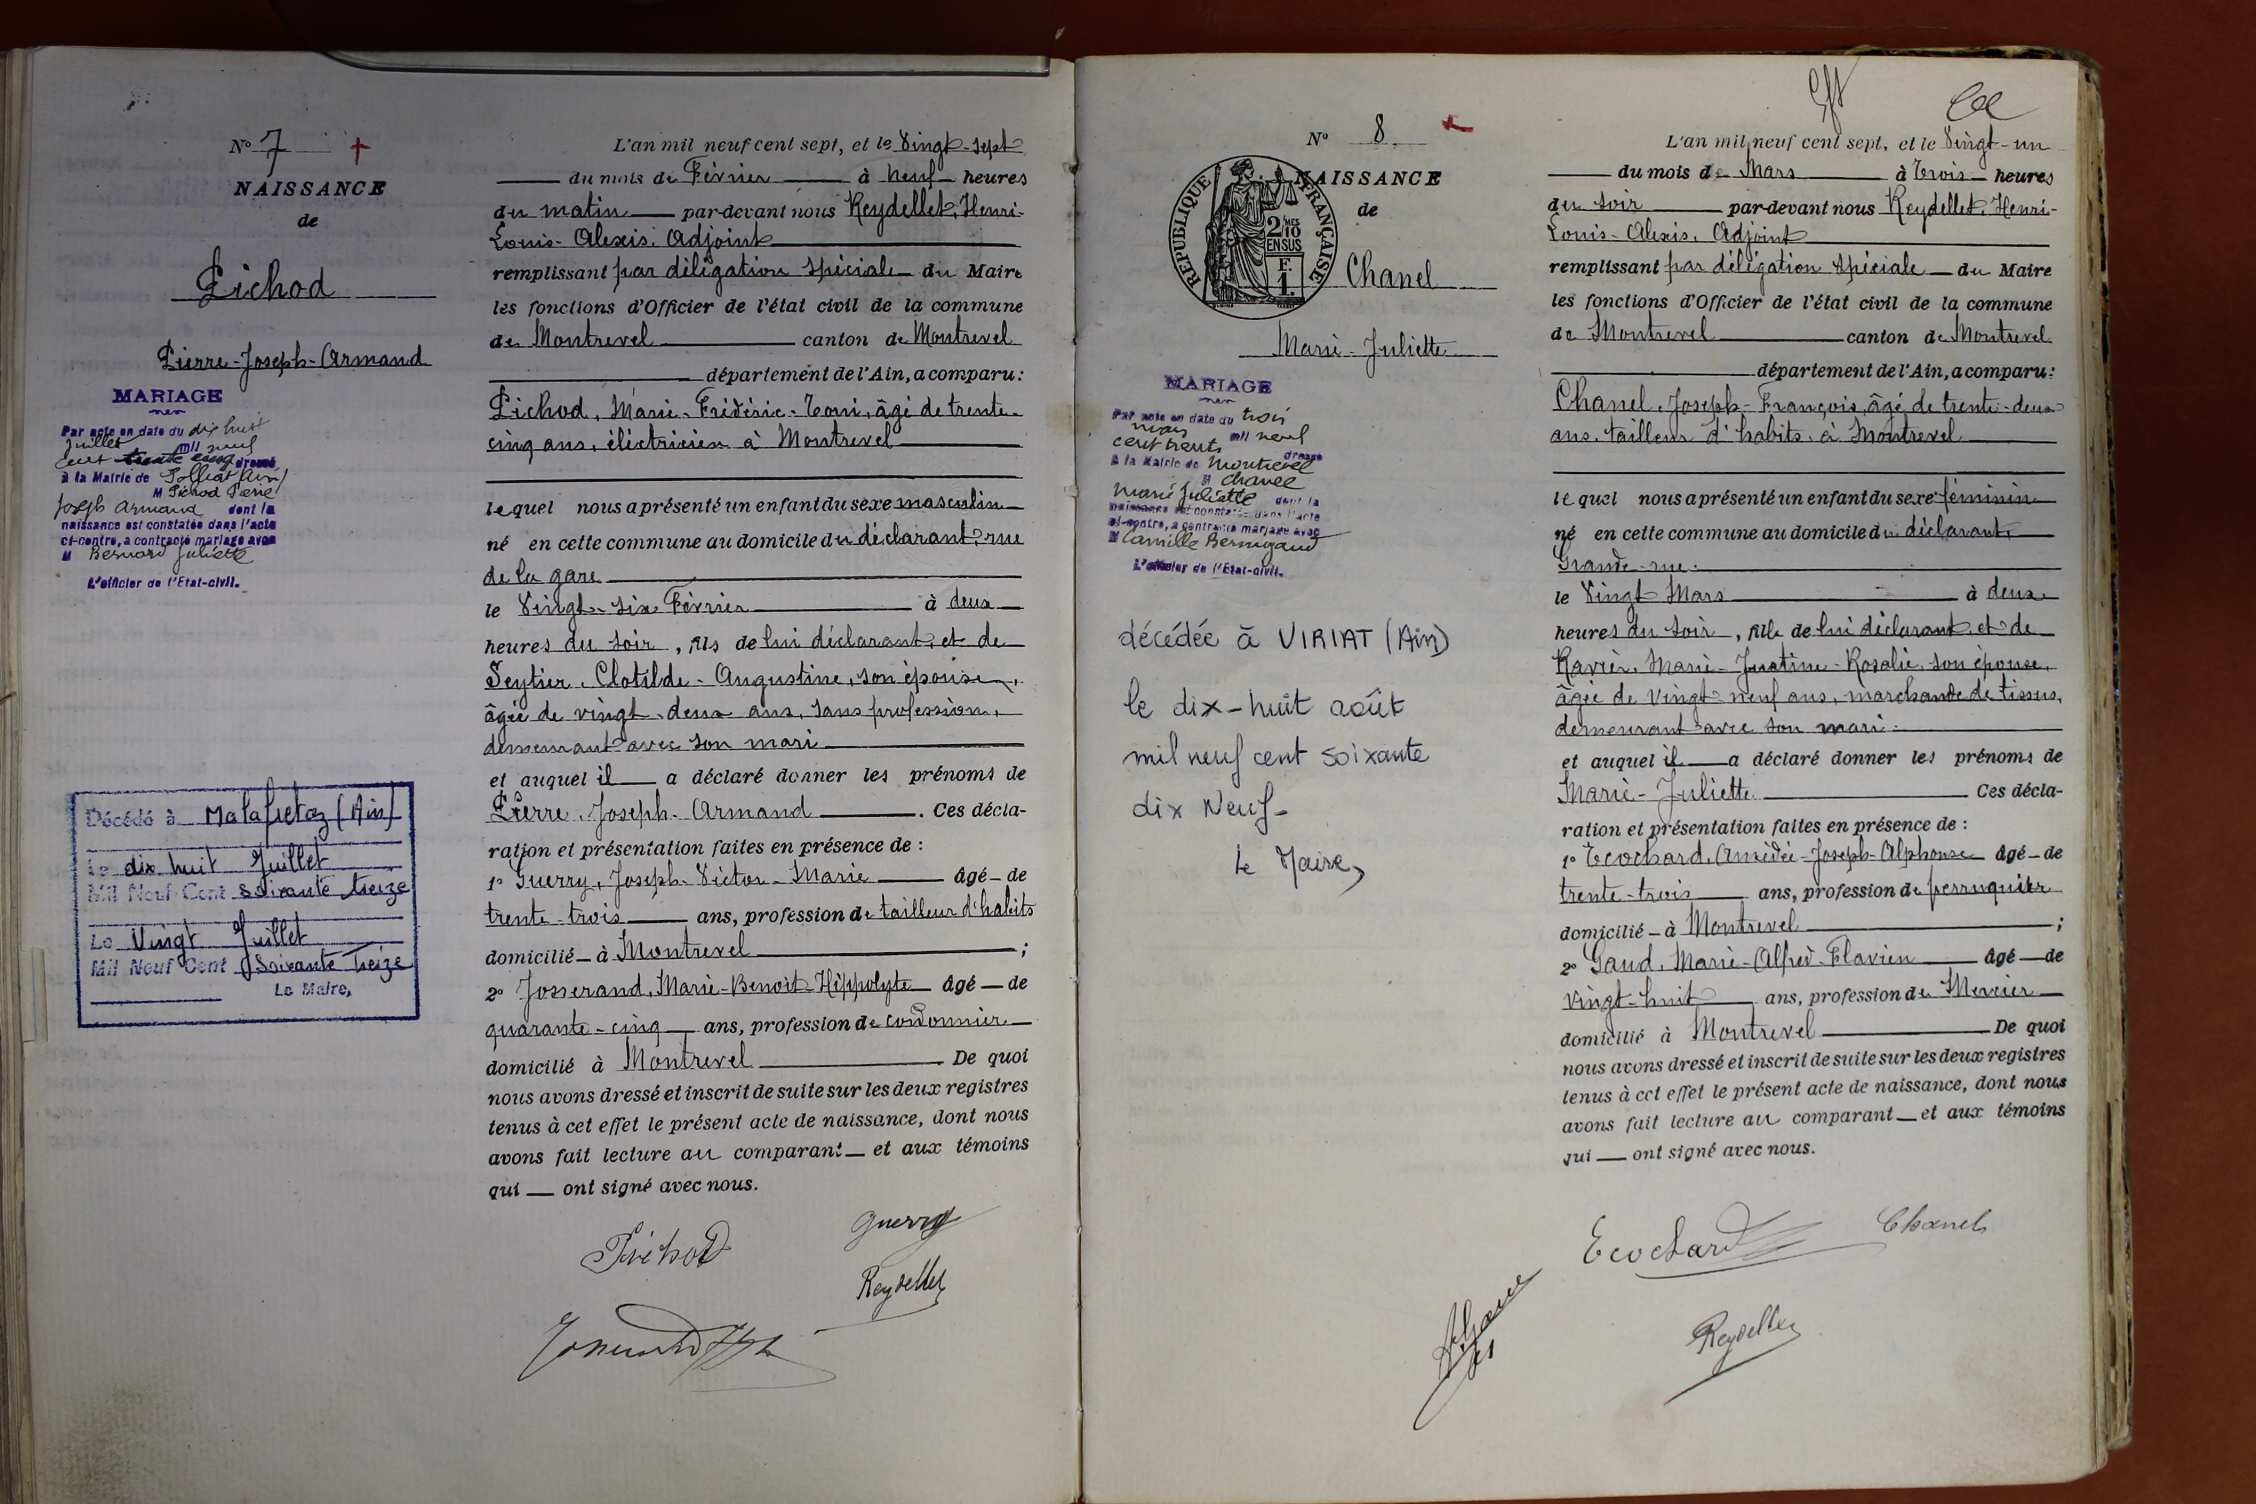 N° 7
NAISSANCE
de
Pichod
Pierre-Joseph-Armand
MARIAGE
Par acte en date du dix huit
juillet mil neuf
cent trente cinq dressé
à la Mairie de Polliat (Ain)
M Pichod Pierre
Joseph Armand dont la
naissance est constatée dans l'acte
ci-contre, a contracté mariage avec
M Bernard Juliette
L'officier de l'Etat-civil.
Décédé à Malafretaz (Ain)
Le dix huit Juillet
Mil Neuf Cent soixante treize
Le Vingt Juillet
Mil Neuf Cent Soixante Treize
Le Maire,
L'an mil neuf cent sept, et le Vingt-sept
du mois de Février à neuf heures
du matin par-devant nous Reydellet, Henri-
Louis-Alexis, Adjoint
remplissant par délégation spéciale du Maire
les fonctions d'Officier de l'état civil de la commune
de Montrevel canton de Montrevel
département de l'Ain, a comparu:
Pichod, Marie-Frédéric-Toni, âgé de trente-
cinq ans, électricien à Montrevel
lequel nous a présenté un enfant du sexe masculin
né en cette commune au domicile du déclarant, rue
de la gare
le Vingt-six Février à deux
heures du soir, fils de lui déclarant et de
Seytier, Clotilde-Augustine, son épouse,
âgée de vingt-deux ans, sans profession,
demeurant avec son mari
et auquel il a déclaré donner les prénoms de
Pierre-Joseph-Armand. Ces décla-
ration et présentation faites en présence de :
1° Guerry, Joseph-Victor-Marie âgé de
trente-trois ans, profession de tailleur d'habits
domicilié à Montrevel ;
2° Josserand, Marie-Benoit-Hippolyte âgé de
quarante-cinq ans, profession de cordonnier
domicilié à Montrevel De quoi
nous avons dressé et inscrit de suite sur les deux registres
tenus à cet effet le présent acte de naissance, dont nous
avons fait lecture au comparant et aux témoins
qui ont signé avec nous.
Pichod
Guerry
Reydellet
N° 8
NAISSANCE
de
REPUBLIQUE FRANÇAISE
2 MES
10
EN SUS
F.
1.
Chanel
Marie-Juliette
MARIAGE
Par acte en date du trois
mars mil neuf
cent trente dressé
à la Mairie de Montrevel
M Chanel
Marie Juliette dont la
naissance est constatée dans l'acte
ci-contre, a contracté mariage avec
M Camille Bernigaud
L'officier de l'Etat-civil.
décédée à VIRIAT (Ain)
le dix-huit août
mil neuf cent soixante
dix Neuf-
Le Maire,
L'an mil neuf cent sept, et le Vingt-un
du mois de Mars à trois heures
du soir par-devant nous Reydellet, Henri-
Louis-Alexis, Adjoint
remplissant par délégation spéciale du Maire
les fonctions d'Officier de l'état civil de la commune
de Montrevel canton de Montrevel
département de l'Ain, a comparu:
Chanel, Joseph-François, âgé de trente-deux
ans, tailleur d'habits, à Montrevel
lequel nous a présenté un enfant du sexe féminin
né en cette commune au domicile du déclarant,
Grande rue
le Vingt Mars à deux
heures du soir, fille de lui déclarant et de
Ravier, Marie-Justine-Rosalie, son épouse,
âgée de vingt-neuf ans, marchande de tissus,
demeurant avec son mari
et auquel il a déclaré donner les prénoms de
Marie-Juliette Ces décla-
ration et présentation faites en présence de :
1° Ecochard, Amédée-Joseph-Alphonse âgé de
trente-trois ans, profession de perruquier
domicilié à Montrevel ;
2° Gaud, Marie-Alfred-Flavien âgé de
vingt-huit ans, profession de Mercier
domicilié à Montrevel De quoi
nous avons dressé et inscrit de suite sur les deux registres
tenus à cet effet le présent acte de naissance, dont nous
avons fait lecture au comparant et aux témoins
qui ont signé avec nous.
Ecochard
Chanel
Reydellet